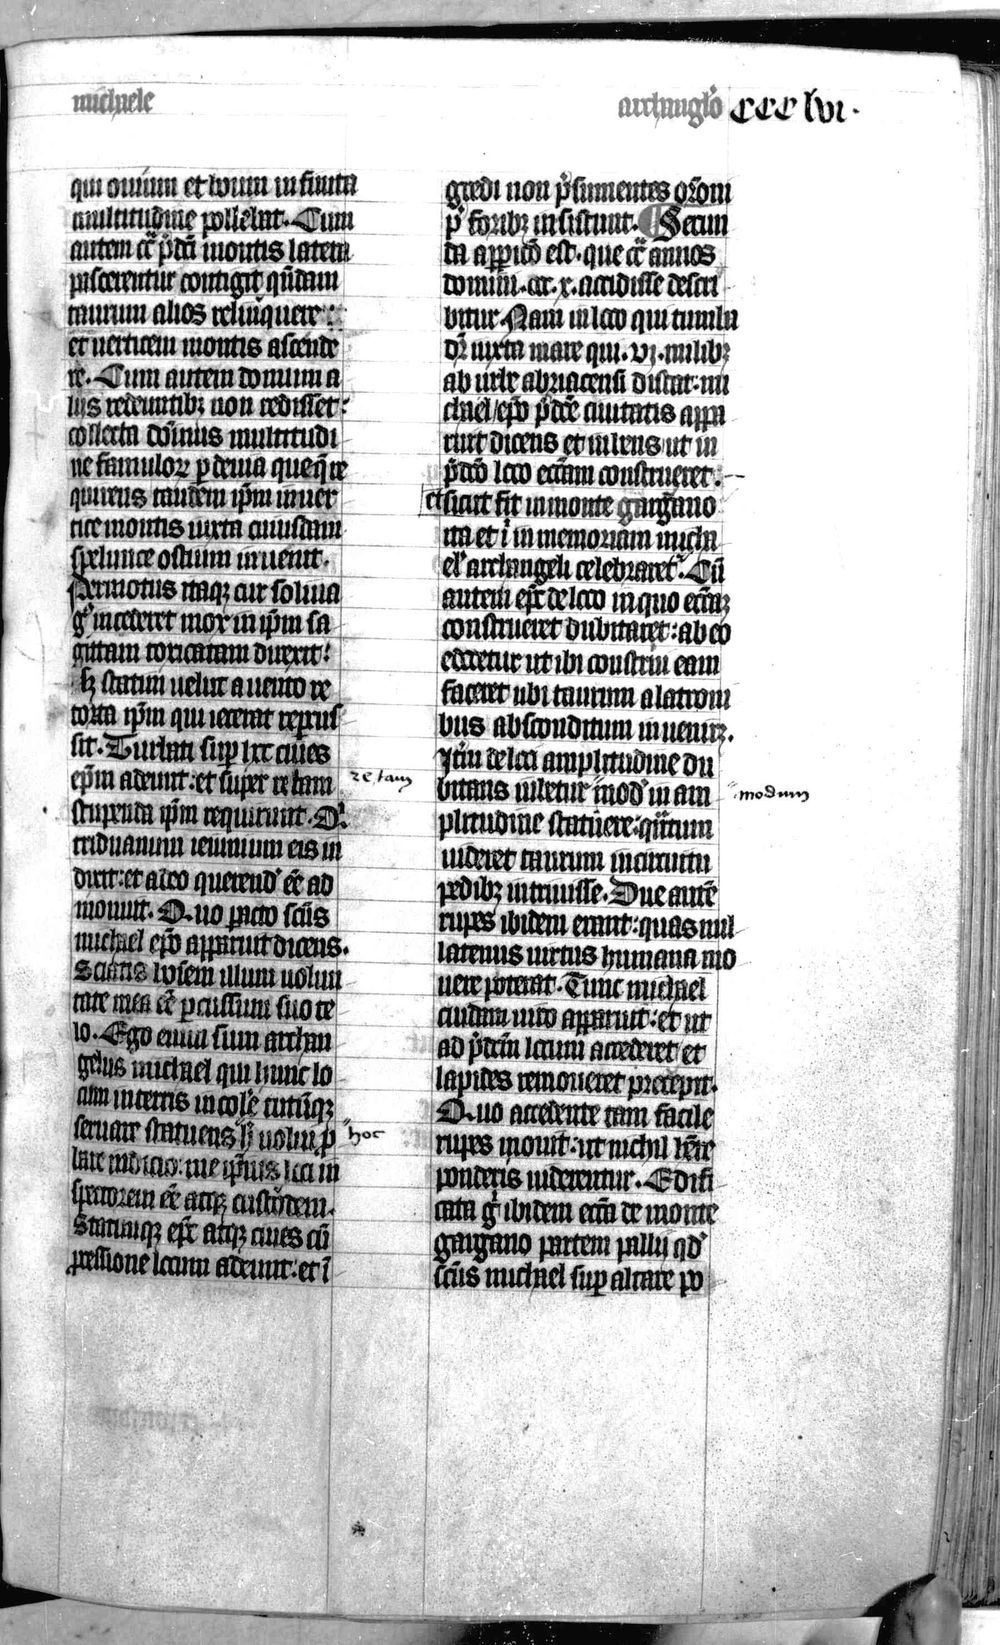 michaele
archanglo CCC lvi.
qui ouium et boum infinita
multitudine pollebat. Cum
autem cĩ p̃dci montis latera
pascerentur contigit q̃ndam
taurum alios relinquere:
et uerticem montis ascende
re. Cum autem domum a
liis redeuntibꝫ non redisset:
collecta dominus multitudi
ne famuloꝝ p deuia queq̃ re
quirens tandem ip̃m in uer
tice montis iuxta cuiusdam
spelunce ostium inuenit.
Permotus itaqꝫ cur soliuagꝰ incederet mox in ip̃m sa
gittam toxicatam direxit:
sꝫ statim uelut a uento re
torta ip̃m qui iecerat repercus
sit. Turbati sup hec ciues
ep̃m adeunt: et super re tam
re tam
stupenda ip̃m requirunt. Qi
triduanum ieiunium eis in
dixit: et a deo querendũ ẽe ad
monuit. Quo pacto scũs
michael ep̃o apparuit dicens.
Sciatis ipsem illum uolun
tate mea ẽe pcussum suo te
lo. Ego enim sum archan
gelus michael qui hunc lo
cum in terris incolẽ tutũqꝫ
seruare statuens h̃ uolui p
hoc
bare indicio: me ip̃ius loci in
spectorem ẽe atqꝫ custodem.
Statimqꝫ ep̃c atqꝫ ciues cũ
pcessione locum adeunt: et ĩ
gredi non p̃sumentes or̃oni
p̃ foribꝫ insistunt. Secun
da appicõ est. que cĩ annos
domini. cc. x. accidisse descri
bitur. Nam in loco qui tumba
dr̃ iuxta mare qui. vj. milibꝫ
ab urbe abriacensi distat: mi
chael ep̃o p̃dcẽ ciuitatis appa
ruit dicens et iubens ut in
p̃dcõ loco ecc̃am construeret.
et sicut fit in monte gargano
ita et ĩ in memoriam micha
elꝰ archangeli celebraretʳ. Cũ
autem ep̃c de loco in quo ecc̃aꝫ
construeret dubitaret: ab eo
edocetur ut ibi construi eam
faceret ubi taurum a latroni
bus absconditum inuenirꝫ.
Itẽm de loci amplitudine du
bitans iubetur modũ in am
modum
plitudine statuere: q̃tum
uideret taurum in circuitu
pedibꝫ intriuisse. Due autẽ
rupes ibidem erant: quas nul
latenus uirtus humana mo
uere poterat. Tunc michael
cuidam uiro apparuit: et ut
ad p̃dcm locum accederet et
lapides remoueret precepit.
Quo accedente tam facile
rupes mouit: ut nichil hr̃e
ponderis uiderentur. Edifi
cata gͥ ibidem ecc̃a de monte
gargano partem pallij qd̃
scũs michael sup altare po